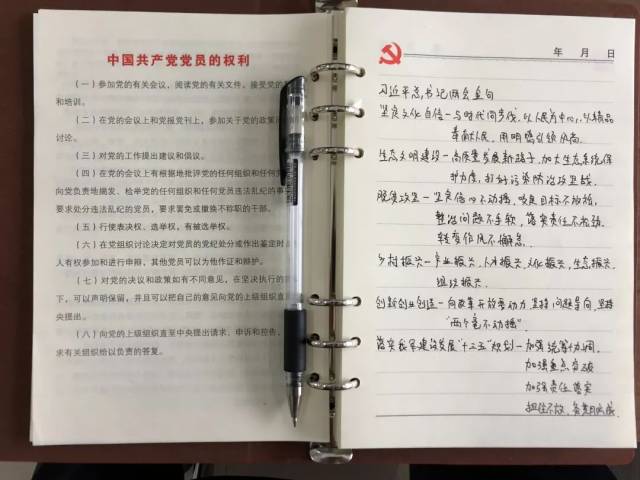 中国共产党党员的权利
（一）参加党的有关会议，阅读党的有关文件，接受党的
和培训。
（二）在党的会议上和党报党刊上，参加关于党的政策
讨论。
（三）对党的工作提出建议和倡议。
（四）在党的会议上有根据地批评党的任何组织和任何
向党负责地揭发、检举党的任何组织和任何党员违法乱纪的事
要求处分违法乱纪的党员，要求罢免或撤换不称职的干部。
（五）行使表决权、选举权，有被选举权。
（六）在党组织讨论决定对党员的党纪处分或作出鉴定时
人有权参加和进行申辩，其他党员可以为他作证和辩护。
（七）对党的决议和政策如有不同意见，在坚决执行的
下，可以声明保留，并且可以把自己的意见向党的上级组织直
央提出。
（八）向党的上级组织直至中央提出请求、申诉和控告，
求有关组织给以负责的答复。
年 月 日
习近平总书记两会金句
坚定文化自信—与时代同步伐，以人民为中心，以精品
奉献人民，用明德引领风尚
生态文明建设—高质量发展新路子，加大生态系统保
护力度，打好污染防治攻坚战
脱贫攻坚—坚定信心不动摇，咬定目标不放松，
整治问题不手软，落实责任不松劲，
转变作风不懈怠
乡村振兴—产业振兴，人才振兴，文化振兴，生态振兴，
组织振兴
创新创业创造—向改革开放要动力，坚持问题导向，坚持
“两个毫不动摇”
落实我军建设发展“十三五”规划—加强统筹协调，
加强重点突破
加强责任落实
抓住不放、务期必成